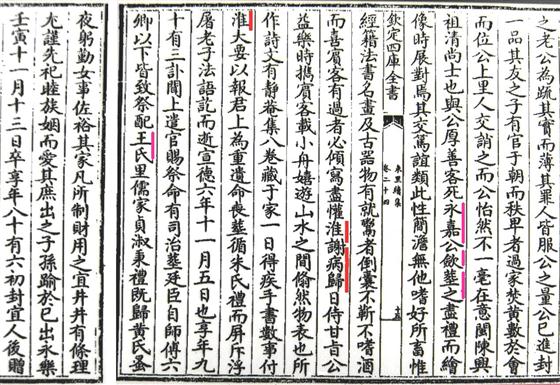 之老公為疏其實而薄其罪人皆服公之量公已進封
一品其友之子有官于朝而秩卑者過家焚黃數於會
而位公上里人交誚之而公怡然不一毫在意閩陳興
祖清尚士也與公厚善客死永嘉公斂塟之盡禮而繪
像時展對焉其交篤誼類此性簡澹無他嗜好所畜惟
欽定四庫全書
東里續集
卷二十四
經籍法書名畫及古器物有就鬻者倒囊不靳不嗜酒
而喜賓客有過者必傾寫盡懽淮謝病歸日侍甘旨公
益樂時携賓客載小舟嬉遊山水之間翛然物表也所
作詩文有靜菴集八卷藏于家一日得疾手書數事付
淮大要以報君上為重遺命喪塟循朱氏禮而屏斥浮
屠老子法語訖而逝宣德六年十一月五日也享年九
十有三訃聞上遣官賜祭命有司治塟廷臣自師傅六
卿以下皆致祭配王氏里儒家貞淑秉禮既歸黃氏蚤
夜躬勤女事佐裕其家凡所制財用之宜井井有條理
尤謹先祀睦族姻而愛其庶出之子孫踰於已出永樂
壬寅十一月十三日卒享年八十有六初封宜人後贈